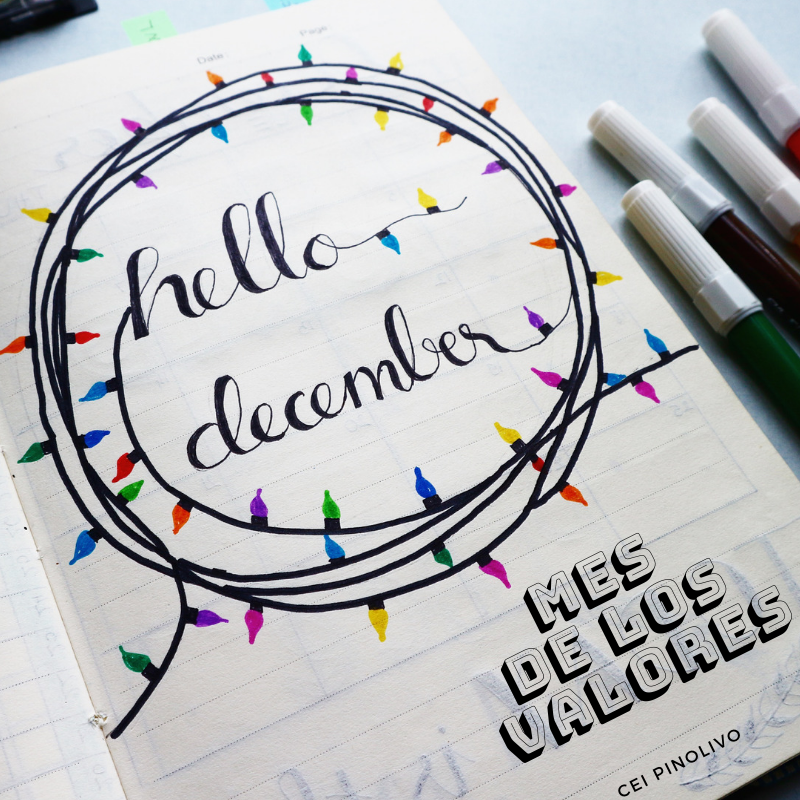 Date
Page
hello
december
MES
DE LOS
VALORES
CEI PINOLIVO